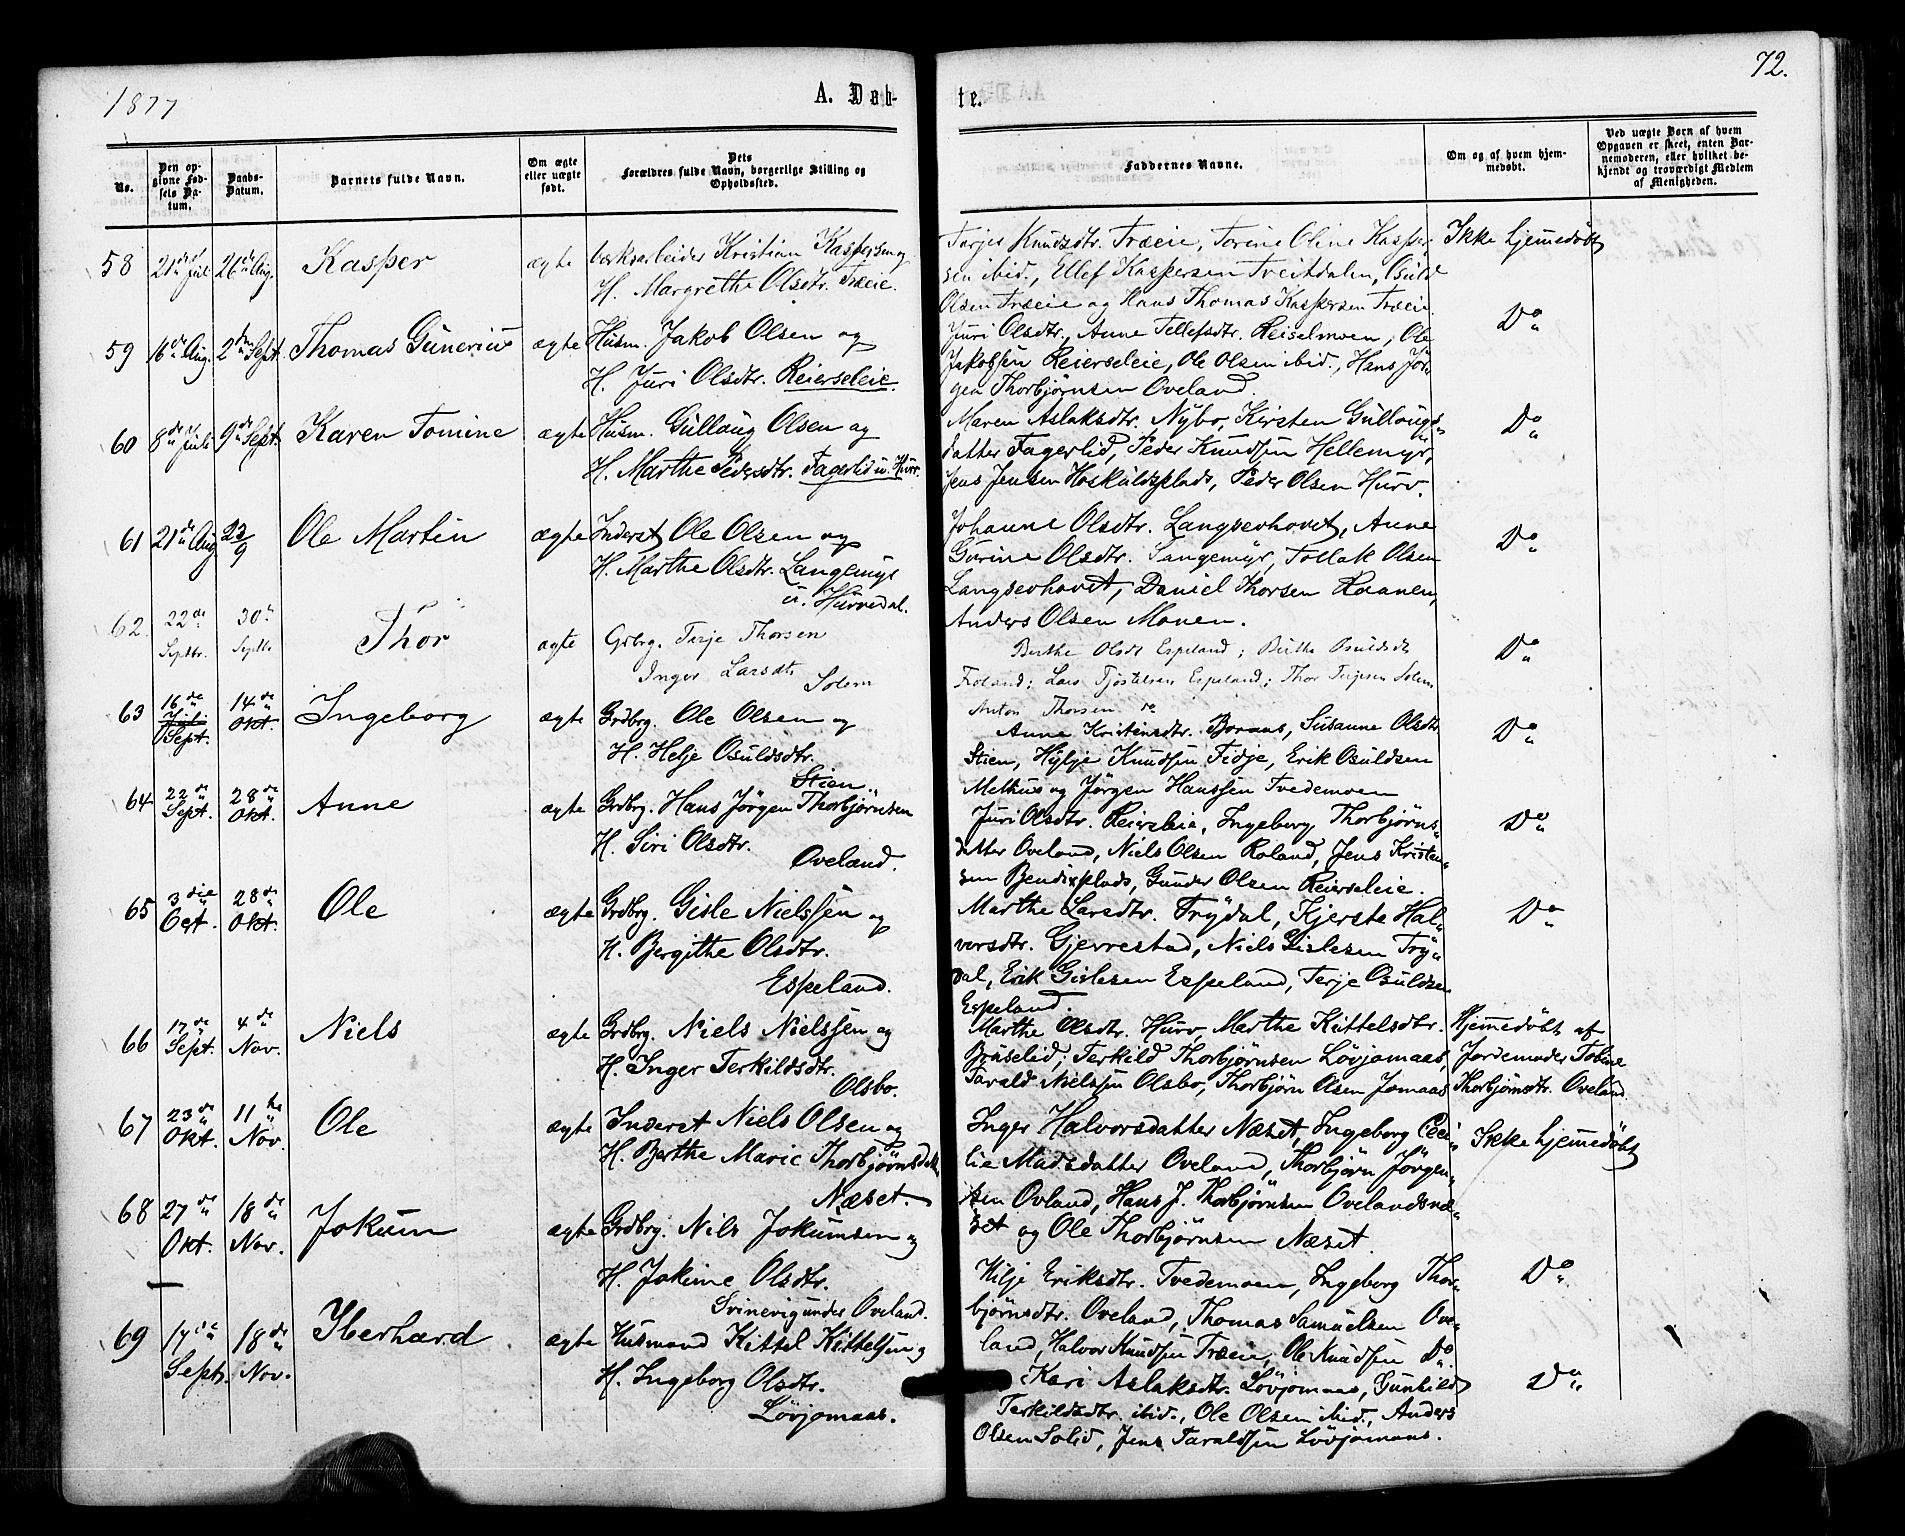 1877
A. Dåb-
te.
72.
No.
Den op-
givne Fød-
sels Da-
tum.
Daabs-
Datum.
Barnets fulde Navn.
Om ægte
eller uægte
født.
Dets
Forældres fulde Navn, borgerlige Stilling og
Opholdsted.
Faddernes Navne.
Om og af hvem hjem-
medøbt.
Ved uægte Børn af hvem
Opgaven er skeet, enten Bar-
nemoderen, eller hvilket be-
kjendt og troværdigt Medlem
af Menigheden.
58 21de Juli 26de Aug. Kasper ægte Værksarbeider Kristian Kaspersen og
H. Margrethe Olsdtr. Træeie.
Tarjer Knudsdtr. Træeie, Torine Oline Kasper-
sen ibid., Ellef Kaspersen Tveitdalen, Osuld
Olsen Træeie og Hans Thomas Kaspersen Træeie.
Ikke hjemmedøbt
59 16de Aug. 2den Sept. Thomas Gunerius ægte Husm. Jakob Olsen og
H. Juri Olsdtr. Reierseleie.
Juri Olsdtr., Anne Tellefsdtr. Reiselmoen, Ole
Jakobsen Reierseleie, Ole Olsen ibid., Hans Jør-
gen Thorbjørnsen Oveland.
Do
60 8de Juli 9de Sept. Karen Tomine ægte Husm. Gulloug Olsen og
H. Marthe Pedersdtr. Fagerlid u. Hurv.
Maren Aslaksdtr. Nybo, Kirsten Gullougs-
datter Fagerlid, Peder Knudsen Hellemyr,
Jens Jensen Høskuldsplads, Peder Olsen Hurv.
Do
61 21de Aug 23/9 Ole Martin ægte Inderst Ole Olsen og
H. Marthe Olsdtr. Langemyr
u. Hurvedal.
Johanne Olsdtr. Langsevhovet, Anne
Gurine Olsdtr. Langemyr, Tollak Olsen
Langsevhovet, Daniel Thorsen Raanen,
Anders Olsen Monen.
Do
62. 22de Septbr. 30te Septbr Thor ægte Grbrg. Terje Thorsen
Inger Larsdtr
Solem
Berthe Olsdt Espeland; Berthe Osuldsdt
Froland; Lars Tjøstelsen Espeland; Thor Terjesen Solem
Anton Thorsen do
Do
63 16de Juli Sept. 14de Okt. Ingeborg ægte Grdbrg. Ole Olsen og
H. Helje Osuldsdtr.
Stien
Anne Kristensdtr. Boraas, Susanne Olsdtr.
Stien, Hylje Knudsen Fidje, Erik Osuldsen
Melhus og Jørgen Hanssen Tvedemoen
Do
64 22de Sept. 28de Okt. Anne ægte Grdbrg. Hans Jørgen Thorbjørnsen
H. Siri Olsdtr.
Oveland.
Juri Olsdtr. Reierseleie, Ingeborg Thorbjørns-
datter Oveland, Niels Olsen Roland, Jens Kristen-
sen Bendixplads, Gunder Olsen Reierseleie.
Do
65 3die Oct. 28de Okt. Ole ægte Grdbrg. Gisle Nielssen og
H. Bergithe Olsdtr.
Espeland.
Marthe Larsdtr. Trydal, Kjerste Hal-
vorsdtr. Gjerrestad, Niels Gislesen Try-
dal, Erik Gislesen Espeland, Terje Osuldsen
Espeland.
Do
66 17de Sept. 4de Nov. Niels ægte Grdbrg. Niels Nielssen og
H. Inger Terkildsdtr.
Olsbo.
Marthe Olsdtr. Hurv, Marthe Kittelsdtr.
Bruselid, Terkild Thorbjørnsen Løvjomaas,
Tarald Nielssen Olsbo, Thorbjørn Olsen Jomaas
Hjemmedøbt af
Jordemoder Tobine
Thorbjørnsdtr. Oveland.
67 23de Okt. 11te Nov. Ole ægte Inderst Niels Olsen og
H. Berthe Marie Thorbjørnsdatt.
Næset.
Inger Halvorsdatter Næset, Ingeborg Ceci-
lie Madsdatter Oveland, Thorbjørn Jørgen-
sen Ovland, Hans J. Thorbjørnsen Ovelandsnæ-
set og Ole Thorbjørnsen Næset.
Ikke hjemmedøbt
68 27de Okt. 18de Nov. Jokum ægte Grdbrg. Nils Jokumsen og
H. Jokine Olsdtr.
Svinevig under Oveland.
Hilje Eriksdtr. Tvedemoen, Ingeborg Thor-
bjørnsdtr. Oveland, Thomas Samuelsen Ove-
land, Halvor Knudsen Træeie, Ole Knudsen Do.
Do
69 17de Septr. 18de Nov. Yberhard ægte Husmand Kittel Kittelsen og
H. Ingeborg Olsdtr.
Løvjomaas.
Kari Aslaksdtr. Løvjomaas, Gunhild
Terkildsdtr. ibid., Ole Olsen ibid., Anders
Olsen Solid, Jens Taraldsen Løvjomaas.
Do